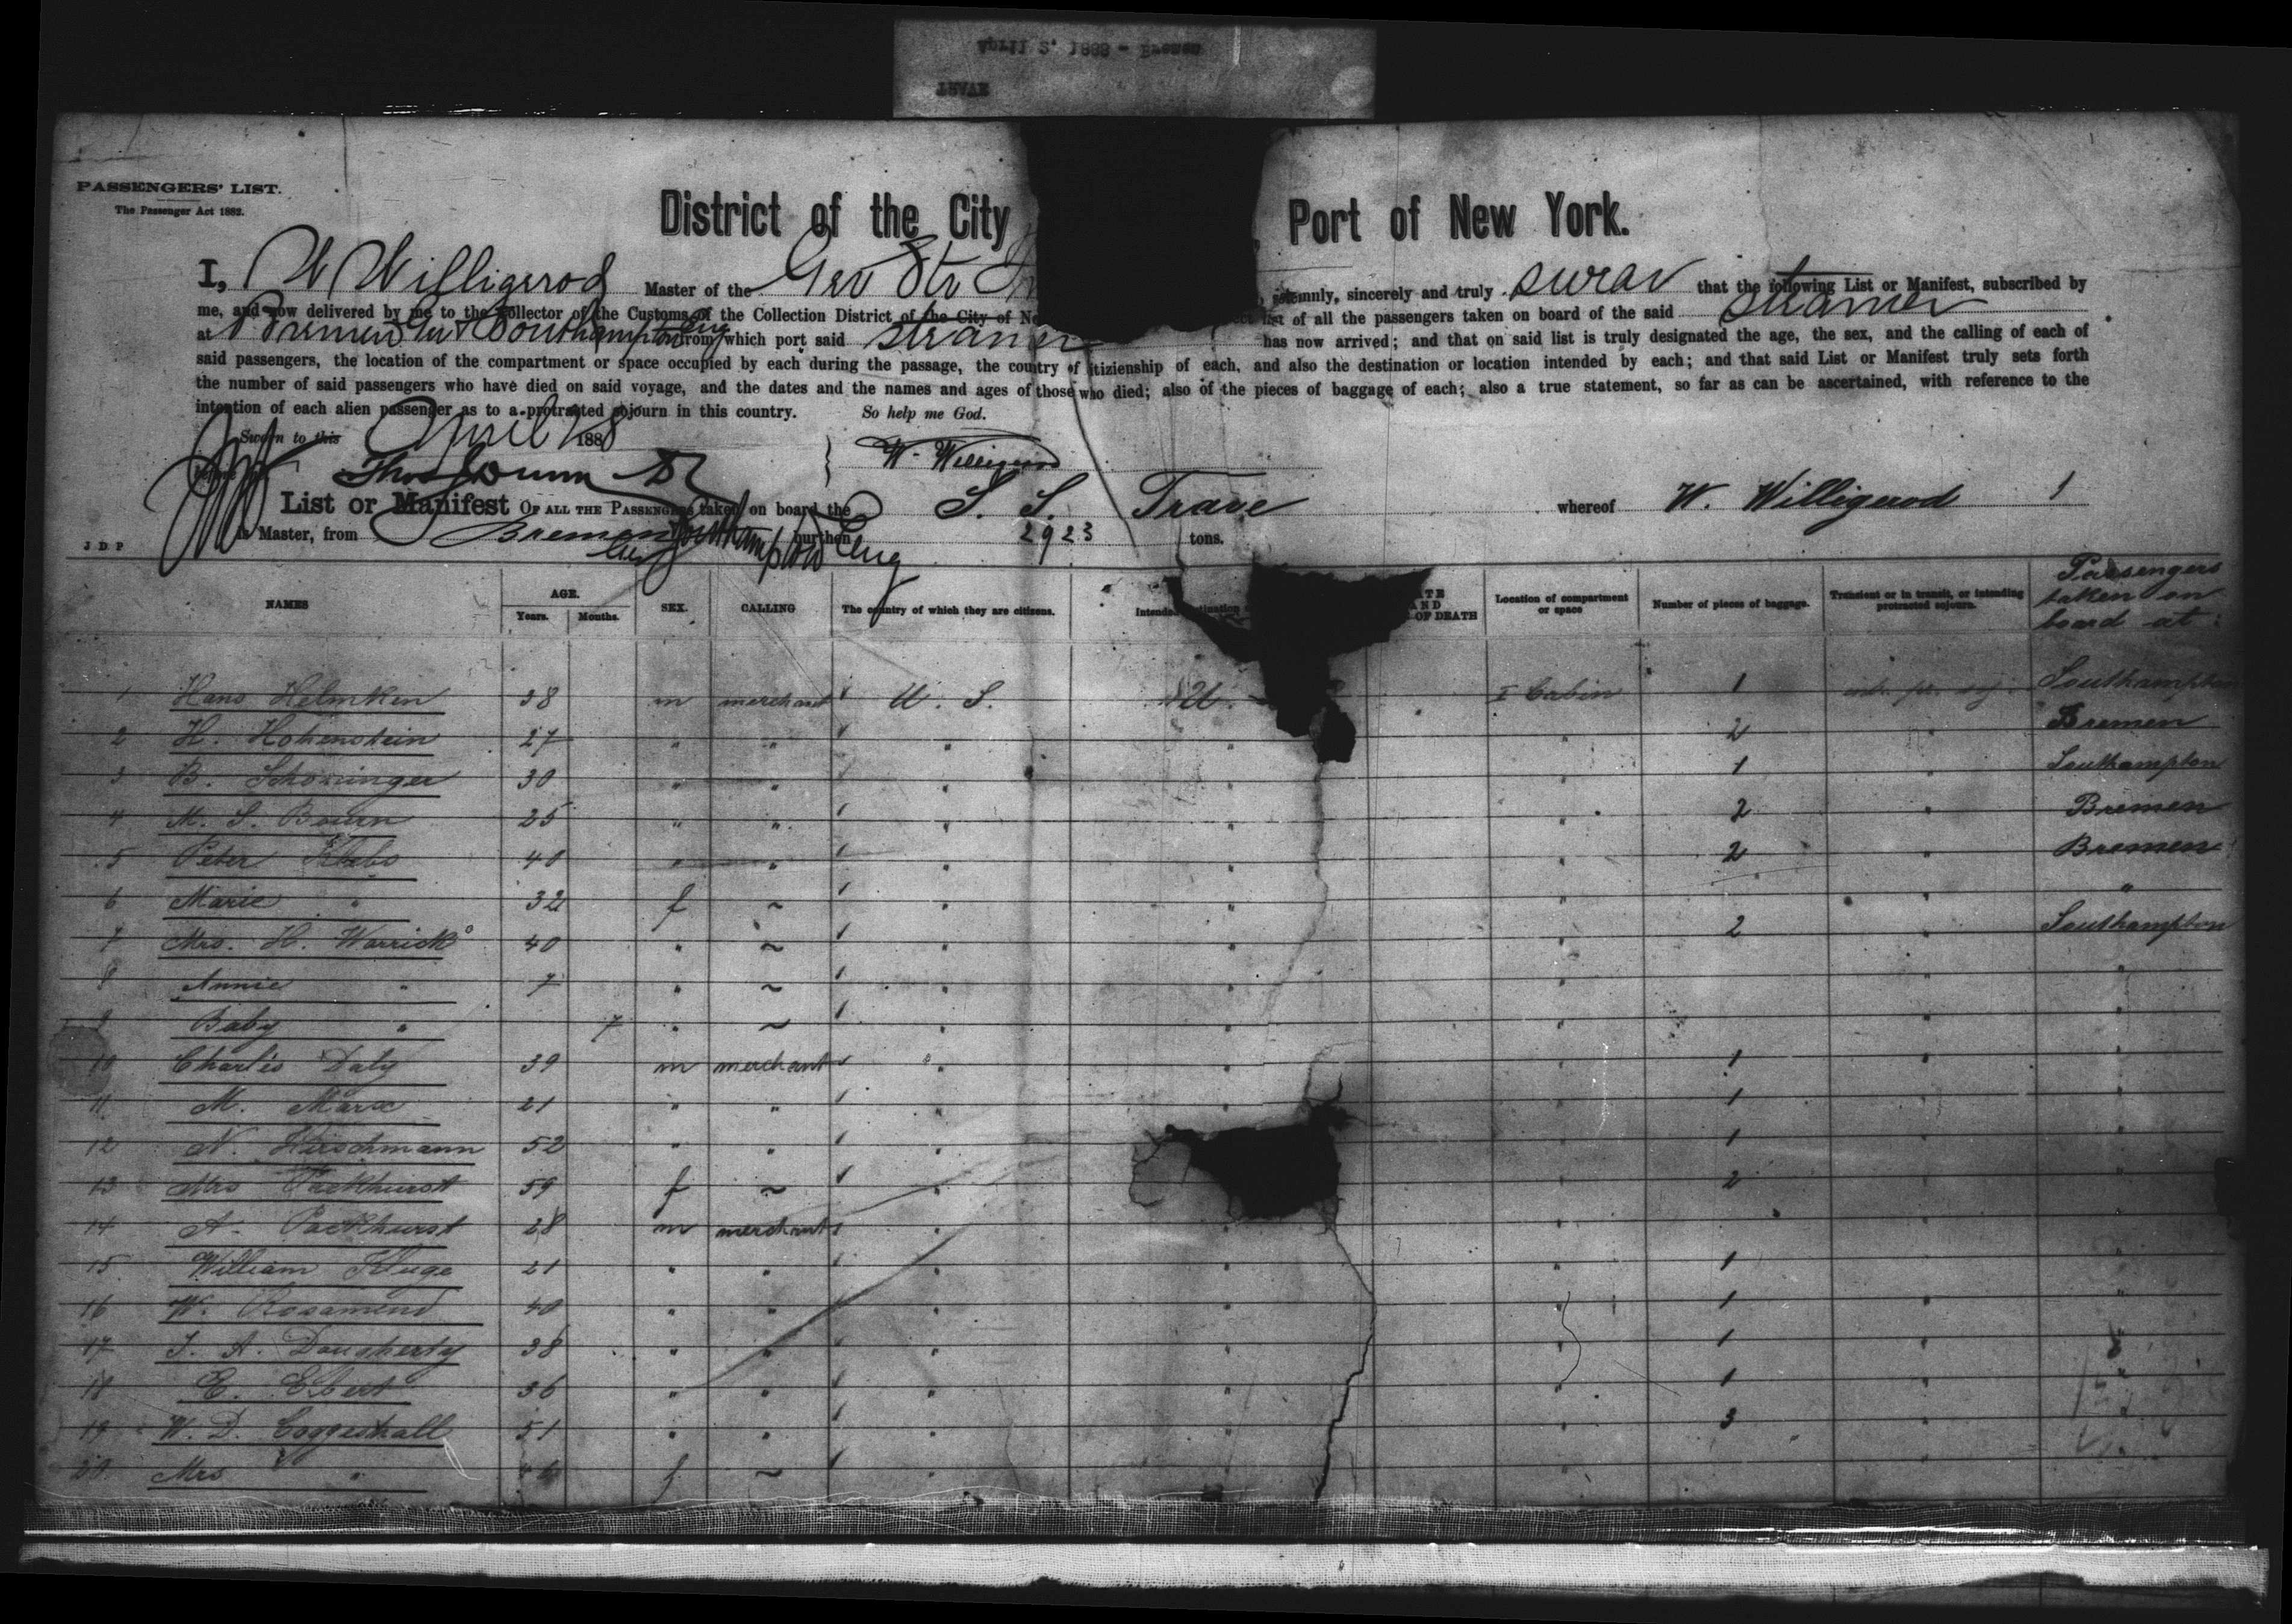 PASSENGERS' LIST.
The Passenger Act 1882.
District of the City Port of New York.
I, W Willigerod Master of the Ger Str solemnly, sincerely and truly swear that the following List or Manifest, subscribed by
me, and now delivered by me to the Collector of the Customs of the Collection District of the City of list of all the passengers taken on board of the said steamer
at Bremen Ger & Southampton Eng from which port said steamer has now arrived; and that on said list is truly designated the age, the sex, and the calling of each of
said passengers, the location of the compartment or space occupied by each during the passage, the country of citizienship of each, and also the destination or location intended by each; and that said List or Manifest truly sets forth
the number of said passengers who have died on said voyage, and the dates and the names and ages of those who died; also of the pieces of baggage of each; also a true statement, so far as can be ascertained, with reference to the
intention of each alien passenger as to a protracted sojourn in this country. So help me God.
Sworn to this April 1888
W. Willigerod
List or Manifest OF ALL THE PASSENGERS taken on board the S. S. Trave whereof W. Willigerod 1
is Master, from Bremen Ger Southampton Eng burthen 2923 tons.
J D P
NAMES AGE. Years. Months. SEX. CALLING The country of which they are citizens. DEATH Location of compartment or space Number of pieces of baggage. Transient or in transit, or intending protracted sojourn. Passengers taken on board at:
1 Hans Helmken 38 m merchant U. S. U. I Cabin 1 Southampton
2 H. Hohenstein 27 " " " " " 2 " Bremen
3 B. Schöninger 30 " " " " " 1 " Southampton
4 M. S. Bourn 25 " " " " " 2 " Bremen
5 Peter Klebs 40 " " " " " 2 " Bremen
6 Marie " 32 f ~ " " " " "
7 Mrs. H. Warrick 40 " ~ " " " 2 " Southampton
8 Annie " 7 " ~ " " " " "
9 Baby " 7 " ~ " " " " "
10 Charles Daly 39 m merchant " " " 1 " "
11 M. Marx 21 " " " " " 1 " "
12 N. Hirschmann 52 " " " " 1 " "
13 Mrs Packhurst 59 f ~ " " 2 " "
14 A. Packhurst 28 m merchant " " " " "
15 William Kluge 21 " " " " " 1 " "
16 W. Rosamend 40 " " " " " 1 " "
17 J. A. Dougherty 38 " " " " " 1 " "
18 E. Ebert 36 " " " " " 1 " "
19 W. D. Coggeshall 51 " " " " " 3 " "
20 Mrs " f ~ " " " " "